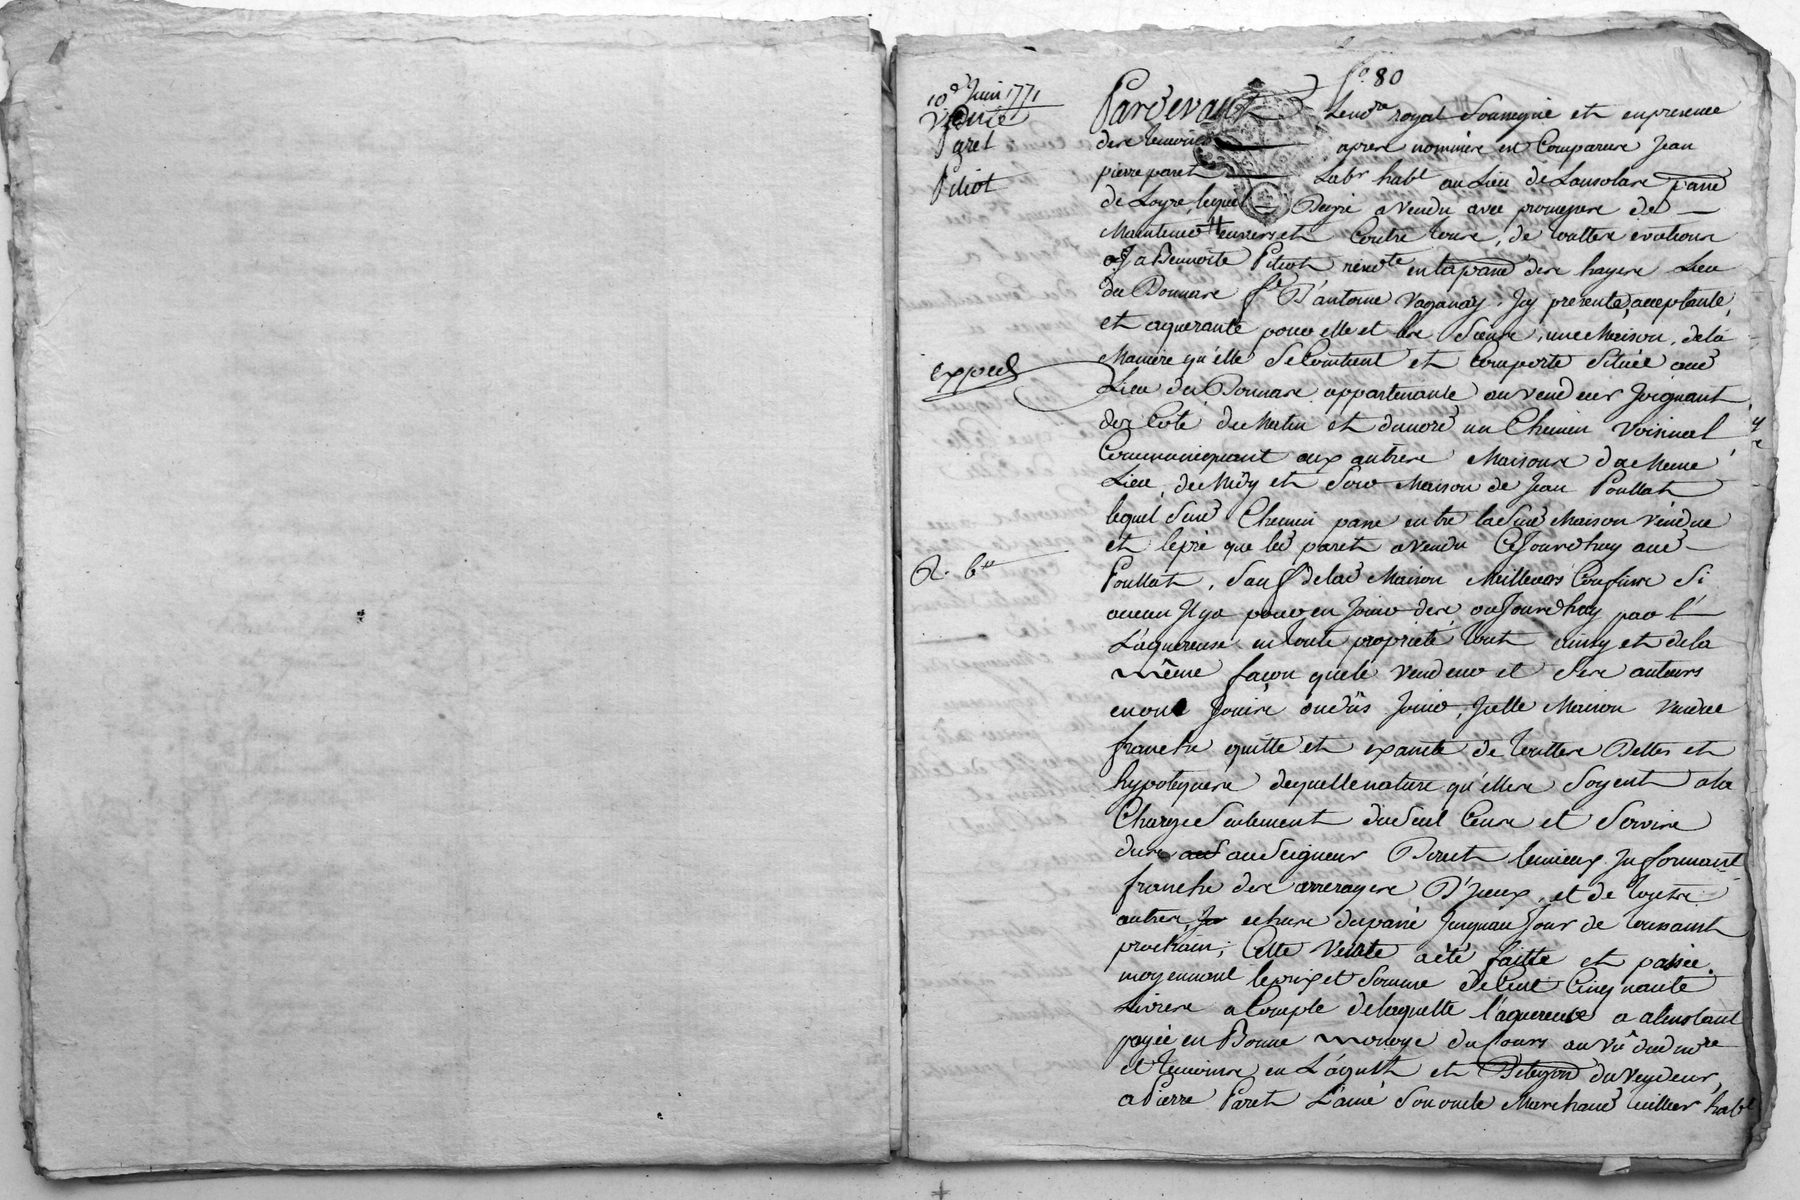 f.° 80
10.e Juin 1771
Vente
Paret
Pitiot
expéd
R. 6tt
Pardevant Le nore royal Soussigné et en presence
des temoins apres nommés en Comparu Jean
pierre paret Labr habt au Lieu de parre
de Loyre, lequel De gré a vendu avec promesse de
Maintenir envers et Contre tous, de touttes evictions
a Benoite Pitiot en la parre des hayes Lieu
du Bonnare fe D'antoine Vaganay, Icy presente, acceptante,
et aquerante pour elle et les Siens, une Maison, de la
Maniere qu'elle Se Contient et Comporte Située aud
Lieu du Bonnare appartenante au vendeur Joignant
des Coté de Matin et dunord un Chemin Voisinal
Communiquant aux autres Maisons du Meme
Lieu, de Midy et Soir Maison de Jean Poullat
lequel Sud Chemin passe entre la Sud Maison vendue
et le pré que led paret a vendu Cejourdhuy aud
Poullat, Sauf de lad Maison Meilleurs Confins Si
aucun Il y a pour en Jouir des aujourdhuy par l'
L'aquereuse en toute propriété tout ainsy et de la
même façon que le vendeur et Ses auteurs
en ont Jouis ou dûs Jouir, Icelle Maison vendue
franche quitte et exante de touttes Dettes et
hypoteques de quelle nature qu'elles Soyent a la
Charge Seulement du Seul Cens et Servis
dus au Seigneur Direct
franche des arrerages D'iceux, et de toutes
autres echus du passé Jusquau Jour de toussaint
prochain; Cette Vente a été faitte et passée
moyennant le prix et Somme de Cent Cinquante
Livres a Compte de laquelle l'aquereuse a alinstant
payée en Bonne monoye du Cours au Vû dud nore
et temoins en L'aquitt et du Vendeur,
a Pierre Paret L'ainé Son oncle Marchand habt